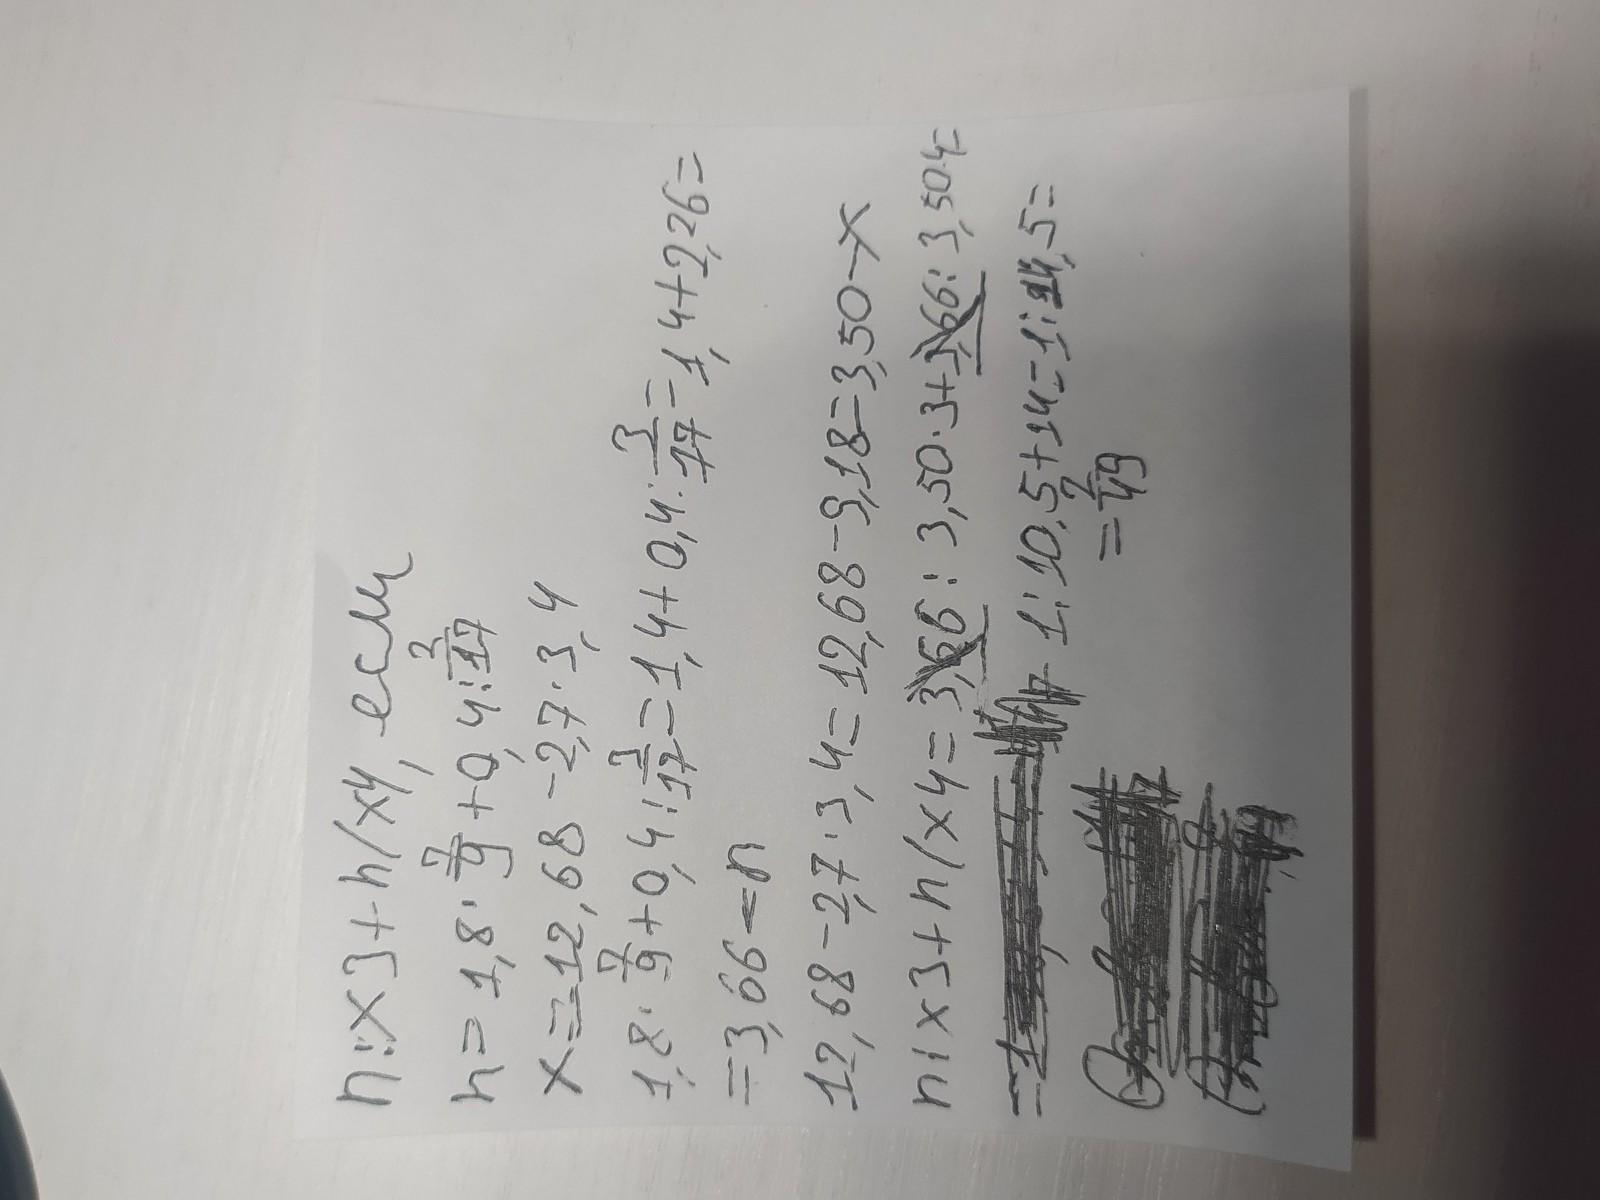 n:x3+n/x4, если
n=1,8·7/9+0,4:3/17
x=12,68-2,7·3,4
1,8·7/9+0,4:3/17=1,4+0,4:3/17=1,4+2,26=
=3,66-n
12,68-2,7·3,4=12,68-9,18=3,50-x
n:x3+n/x4=3,66:3,50·3+3,66:3,50·4=
=1:10,5+14=1:24,5=
=2/49